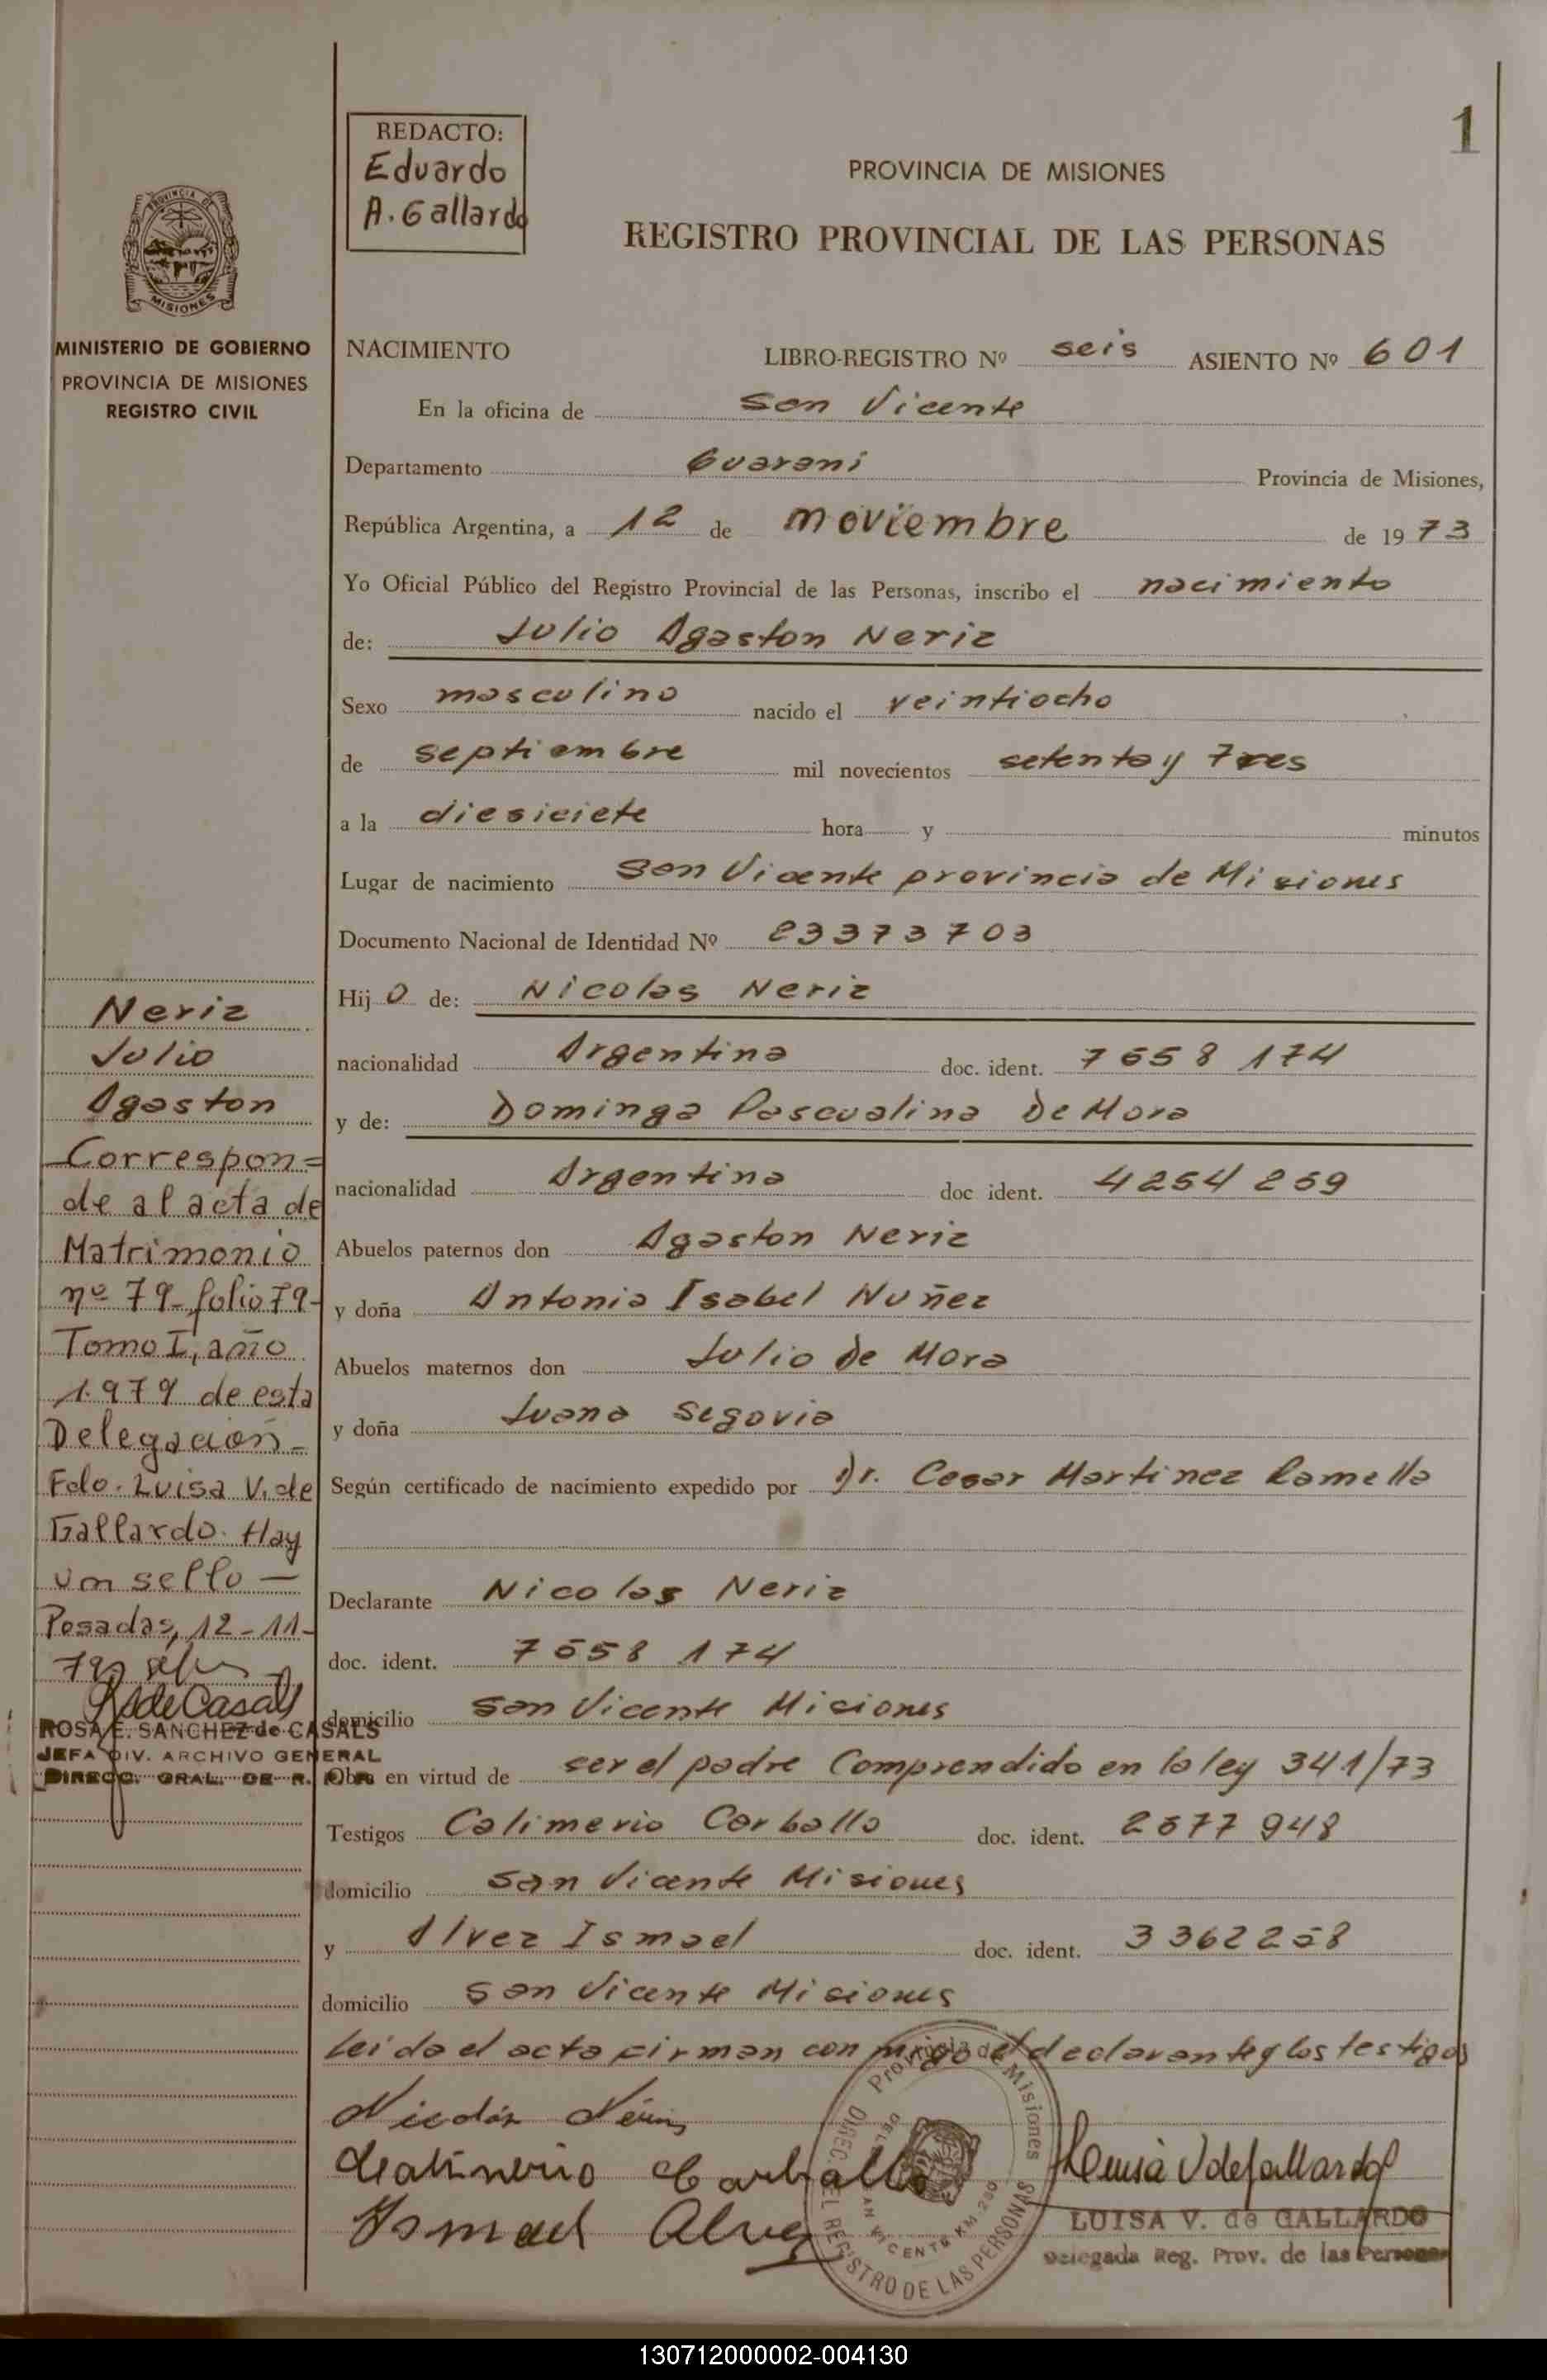 1
REDACTO:
Eduardo
A. Gallardo
PROVINCIA DE MISIONES
REGISTRO PROVINCIAL DE LAS PERSONAS
PROVINCIA DE
MISIONES
MINISTERIO DE GOBIERNO
PROVINCIA DE MISIONES
REGISTRO CIVIL
NACIMIENTO LIBRO-REGISTRO Nº seis ASIENTO Nº 601
En la oficina de San Vicente
Departamento Guarani Provincia de Misiones,
República Argentina, a 12 de noviembre de 1973
Yo Oficial Público del Registro Provincial de las Personas, inscribo el nacimiento
de: Julio Agaston Neriz
Sexo masculino nacido el veintiocho
de septiembre mil novecientos setenta y tres
a la diesiciete hora y minutos
Lugar de nacimiento San Vicente provincia de Misiones
Documento Nacional de Identidad Nº 23373703
Hijo de: Nicolas Neriz
nacionalidad Argentina doc. ident. 7558 174
y de: Dominga Pascualina De Mora
nacionalidad Argentina doc ident. 4254 259
Abuelos paternos don Agaston Neriz
y doña Antonia Isabel Nuñez
Abuelos maternos don Julio De Mora
y doña Juana Segovia
Según certificado de nacimiento expedido por Dr. Cesar Martinez Ramella
Declarante Nicolas Neriz
doc. ident. 7558 174
domicilio San Vicente Misiones
Obra en virtud de ser el padre Comprendido en la ley 341/73
Testigos Calimerio Carballo doc. ident. 2577 948
domicilio San Vicente Misiones
y Alvez Ismael doc. ident. 3362258
domicilio San Vicente Misiones
Leida el acta firman con migo el declarante y los testigos
Nicolás Nériz
Calimerio Carballo
Ismael Alvez
Luisa V de Gallardo
LUISA V. de GALLARDO
Delegada Reg. Prov. de las Personas
Provincia de Misiones
DIREC. DEL REGISTRO DE LAS PERSONAS
SAN VICENTE KM. 280
Neriz
Julio
Agaston
Correspon=
de al acta de
Matrimonio
nº 79 folio 79-
Tomo I, año
1.979 de esta
Delegación-
Fdo. Luisa V. de
Gallardo. Hay
un sello —
Posadas, 12-11-
79
R S de Casals
ROSA E. SANCHEZ de CASALS
JEFA DIV. ARCHIVO GENERAL
DIRECC. GRAL. DE R.
130712000002-004130